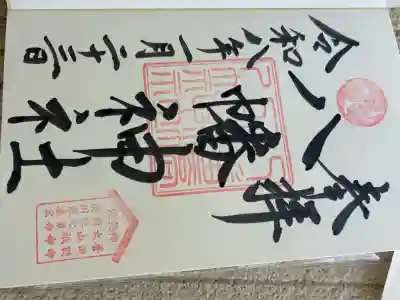 奉拝
八幡神社
令和八年一月二十三日